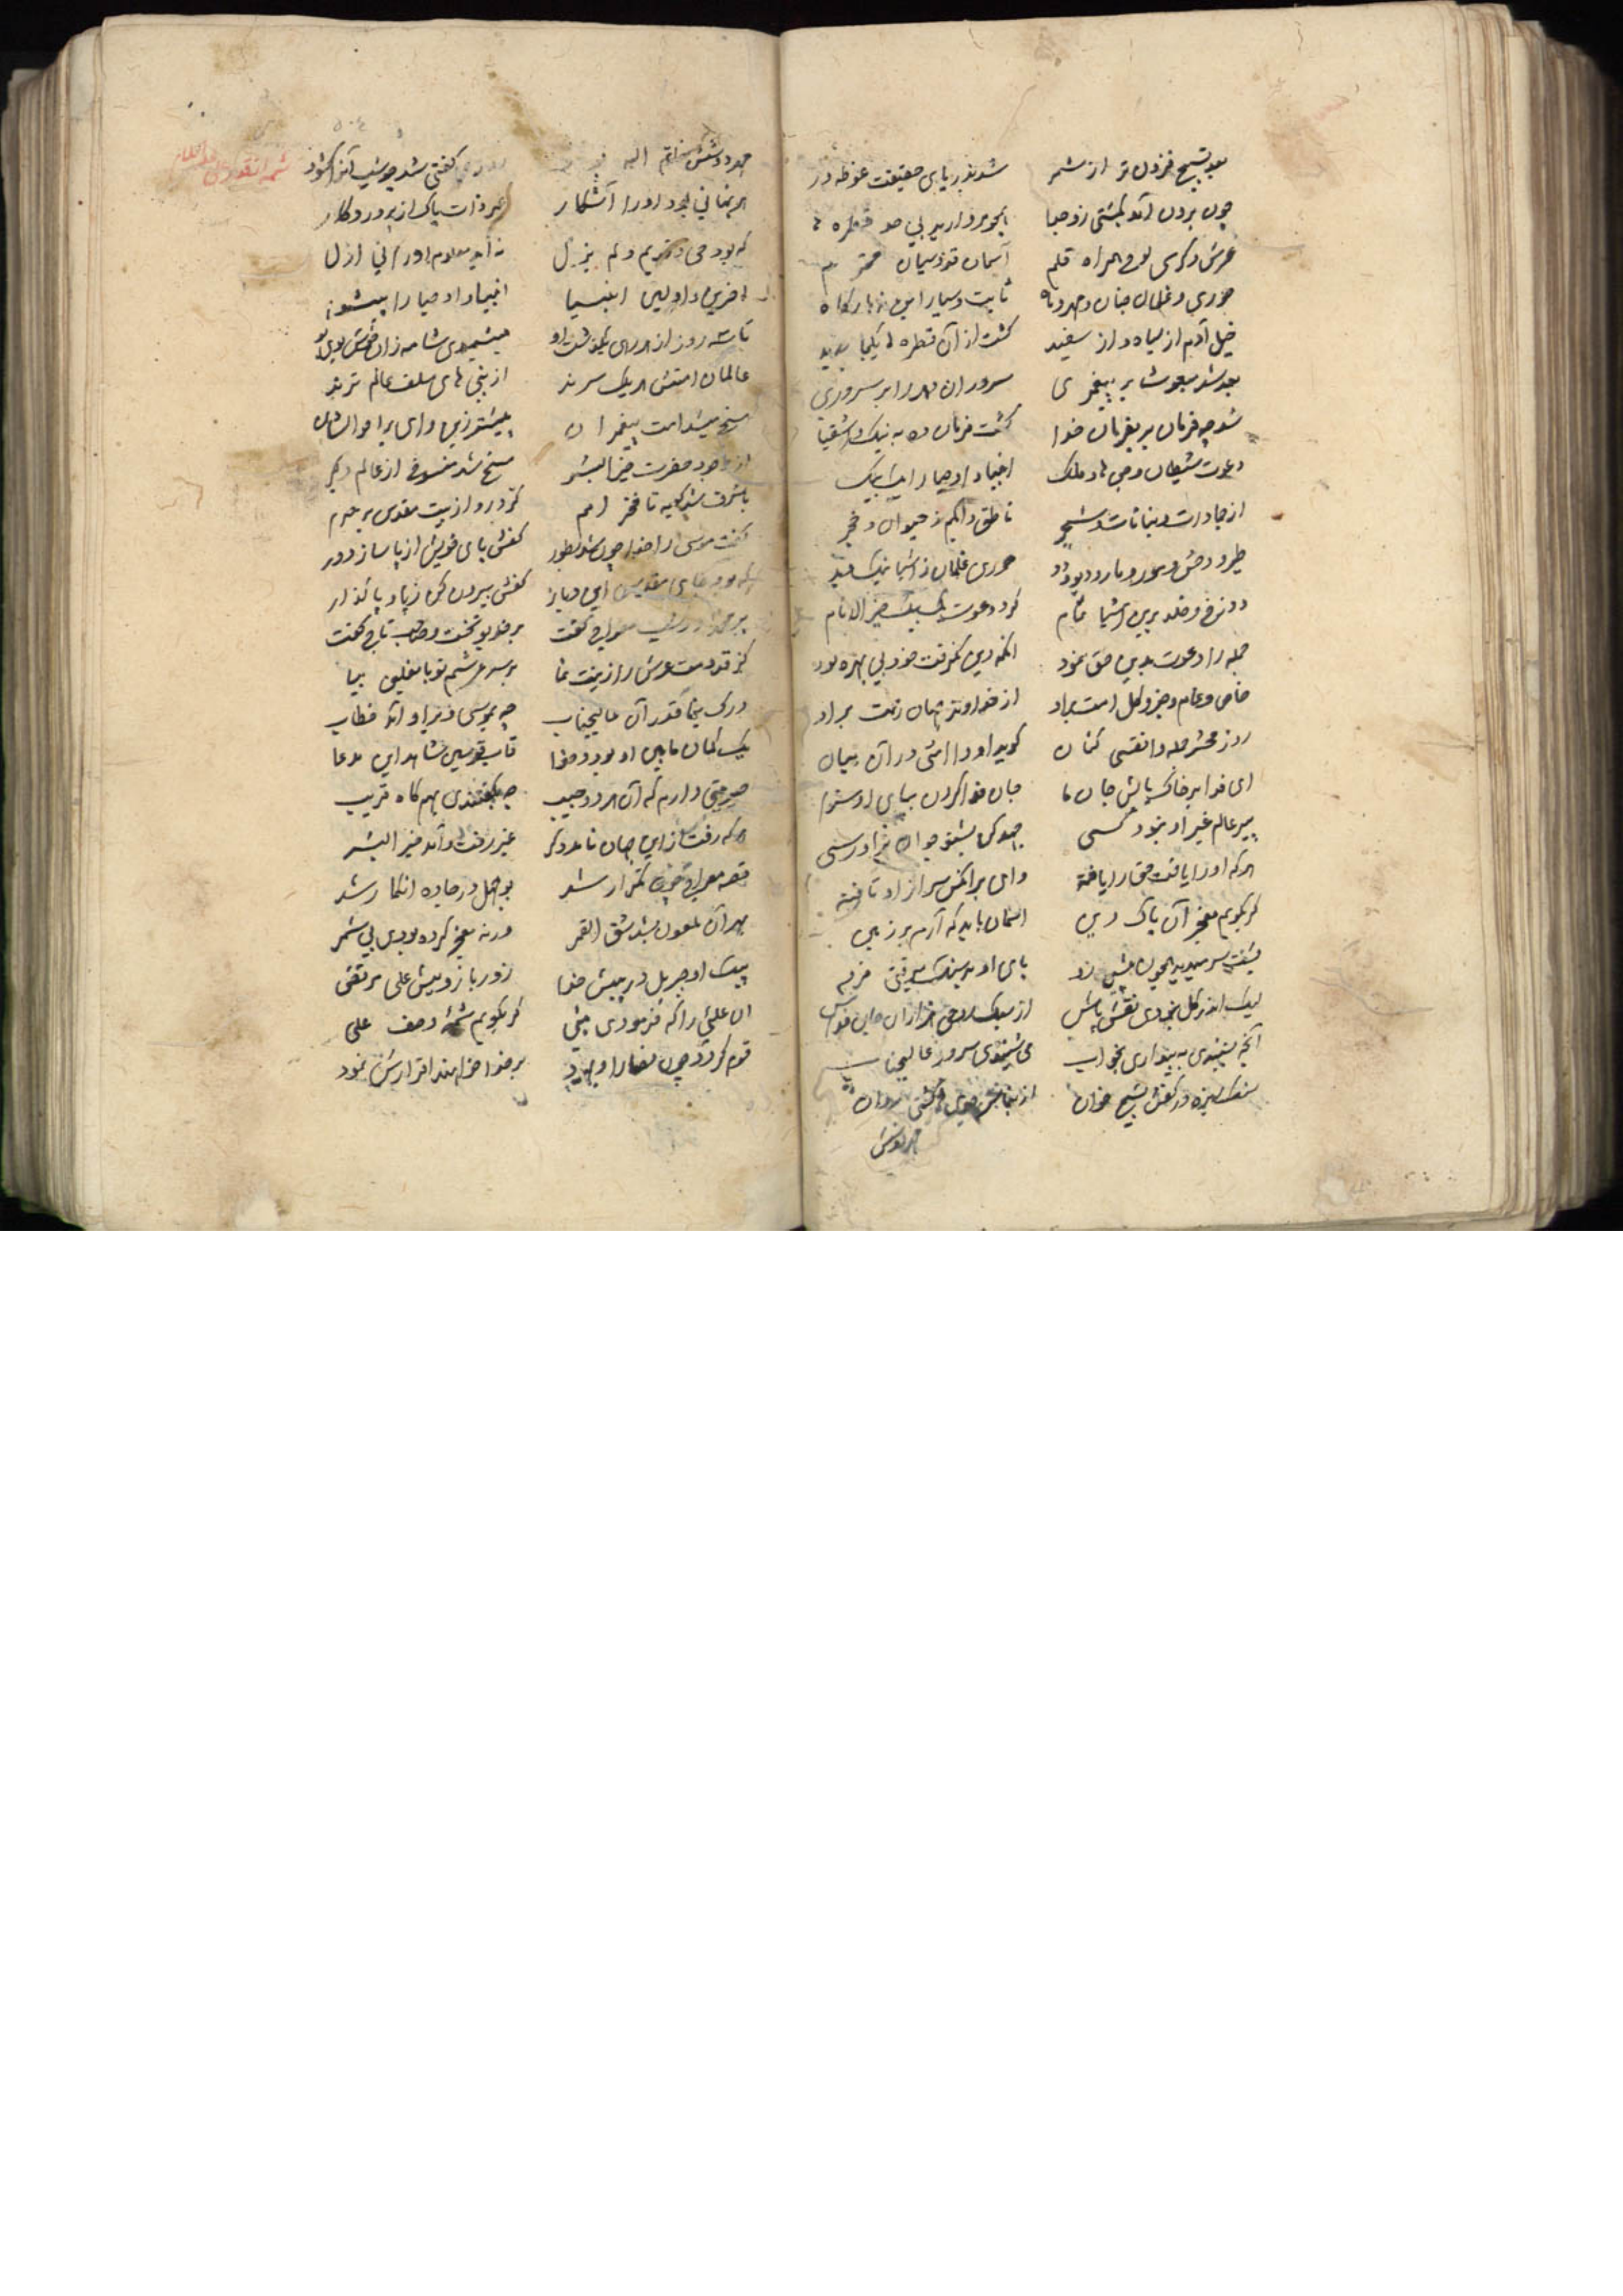 بعد تسبیح فزون تر از شمر شد بدریای حقیقت غوطه ور
چون برون آمد بگشتی زو جدا همچو مروارید بی صد قطره ها
عرش و کرسی لوح همراه قلم آسمان قدوسیان محترم
حوری و غلمان جنان و مهر و ماه ثابت و سیار این نه بارگاه
خیل آدم از سیاه و از سفید گشت از آن قطره ها یکجا پدید
بعد شد مبعوث بر پیغمبری سروران را بر سروری
شد چه فرمان بر بفرمان خدا گشت فرمان ده به نیک و اشقیا
دعوت شیطان و جن ها و ملک انبیا و اوصیا را یک بیک
از جمادات و نباتات و شجر ناطق و ابکم ز حیوان و حجر
طیر و وحش و مور و مار و دیو و دد حوری غلمان ز اشیا نیک و بد
دوزخ و خلد برین اشیا تمام کرد دعوت یک بیک خیر الانام
جمله را دعوت بدین حق نمود آنکه دین نگرفت خود بی بهره بود
خاص و عام و جز و کل امت براد از خداوند جهان رحمت براد
روز محشر جمله وا نفسی کنان گوید او وا امتی در آن میان
ای فدا بر خاک پایش جان ما جان فدا کردن بپای او سزا
بهر عالم غیر او نبود کسی جهد کن بشنو جوان فریادرسی
هر که او را یافت حق را یافته وای بر آنکس سر از او تافته
گر بگویم معجز آن پاک دین آسمان باید که آرم بر زمین
پشت سر میدید همچون پیش رو پای او بر سنگ میرفتی فرو
لیک اندر گل نبودی نقش پاش از سبک روحی هزاران جان فداش
آنچه بشنیدی به بیداری بخواب می شنیدی سرور عالیجناب
سنگریزه در کفش تسبیح خوان از بنانش گشتی روان
مهر دوشش خاتم گفتی شد چو شب آنرا کنوز
هر نهانی بود او را آشکار غیر ذات پاک از پروردگار
که بود حی و قدیم و لم یزل نه آید معلوم او را نی ازل
آخرین و اولین انبیا انبیا و اوصیا را پیشوا
تا سه روز از هر رهی بگذشت او میشمیدی شامه زان خوش بوی او
عالمان امتش هر یک سرند از نبی های سلف عالم ترند
مسخ میشد امت پیغمبران پیشتر زین وای بر احوالشان
از وجود حضرت خیر البشر مسخ شد منسوخ از عالم دگر
با شرف شد کعبه تا فخر امم کرد رو از بیت مقدس بر حرم
گفت موسی را خدا چون شد بطور کفش پای خویش از پا ساز دور
که بود جای مقدس این دیار کفش بیرون کن ز پا و پا گذار
بر محمد در شب معراج گفت
کز قدومت عرش را زینت نما بر سر عرشم تو با نعلین بیا
درک بنما قدر آن عالیجناب چه بموسی و بر او آمد خطاب
یک کمان مابین او بود و خدا قاب قوسین شاهد این مدعا
حیرتی دارم که آن هر دو حبیب چه بگفتندی بهم گاه قریب
هر که رفت از این جهان نامد دگر غیر رفت و آمد خیر البشر
قصه معراج چون تکرار شد بوجهل در جاده انکار شد
بهر آن ملعون بشد شق القمر ورنه معجز کرده بودی بی شمر
پیک او جبریل در پیش خدا زور بازویش علی مرتضی
آن علی را که فرمودی نبی گر بگویم شمه وصف علی
قوم کردو چون نصارا و یهود بر خدا خواهند اقرارش نمود